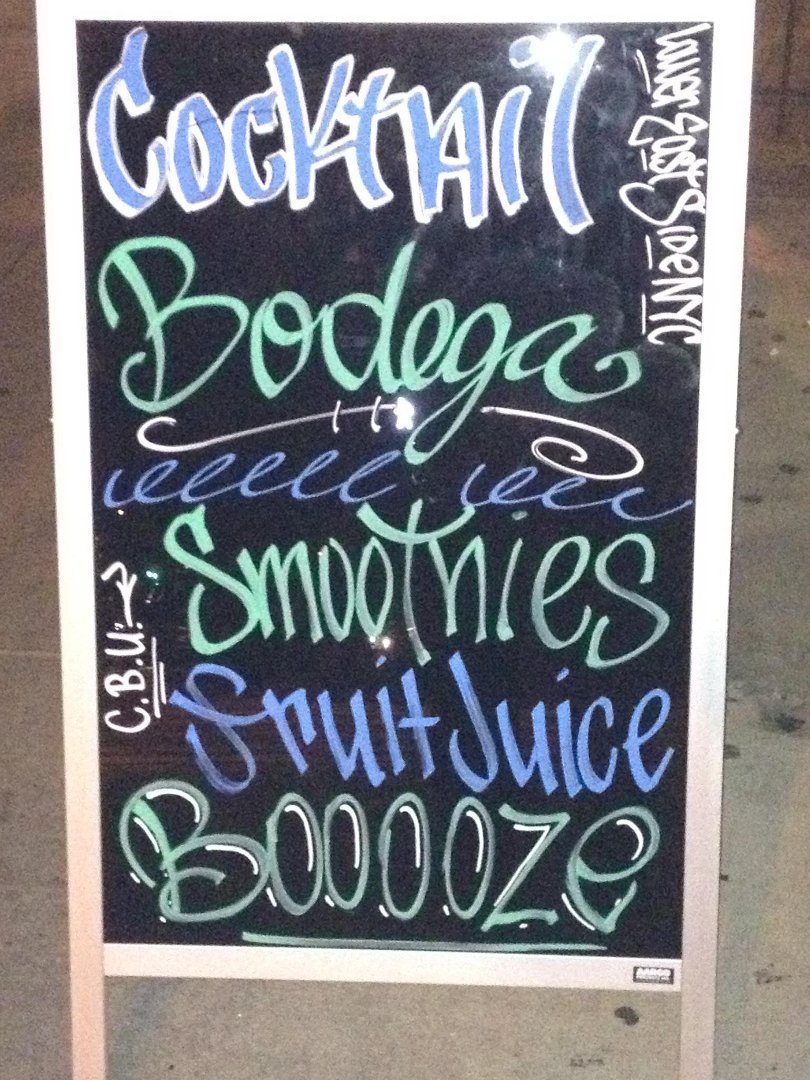 Cocktail
Lower East Side NYC
Bodega
Smoothies
C.B.U.
Fruit Juice
BOOOOZe